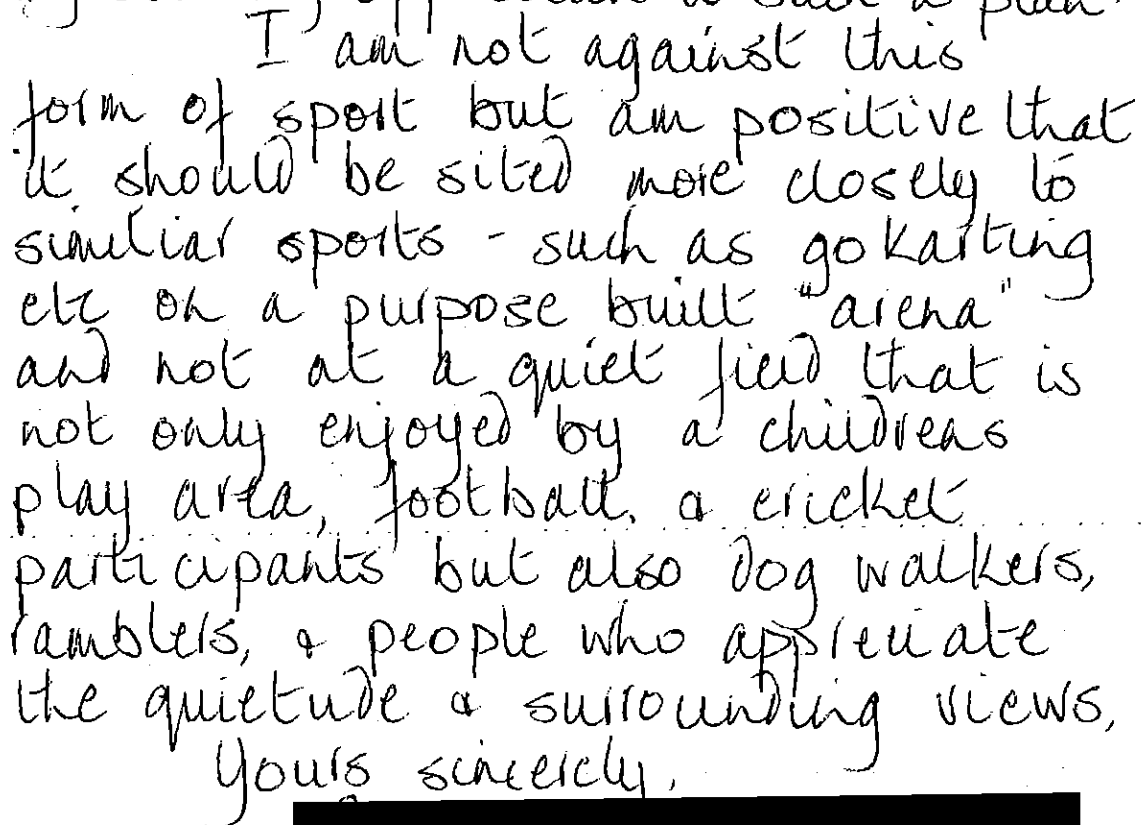 to such a plan.
I am not against this
form of sport but am positive that
it should be sited more closely to
similiar sports - such as go karting
etc on a purpose built "arena"
and not at a quiet field that is
not only enjoyed by a childrens
play area, football, & cricket
participants but also dog walkers,
ramblers, & people who appreciate
the quietude & surrounding views,
Yours sincerely,